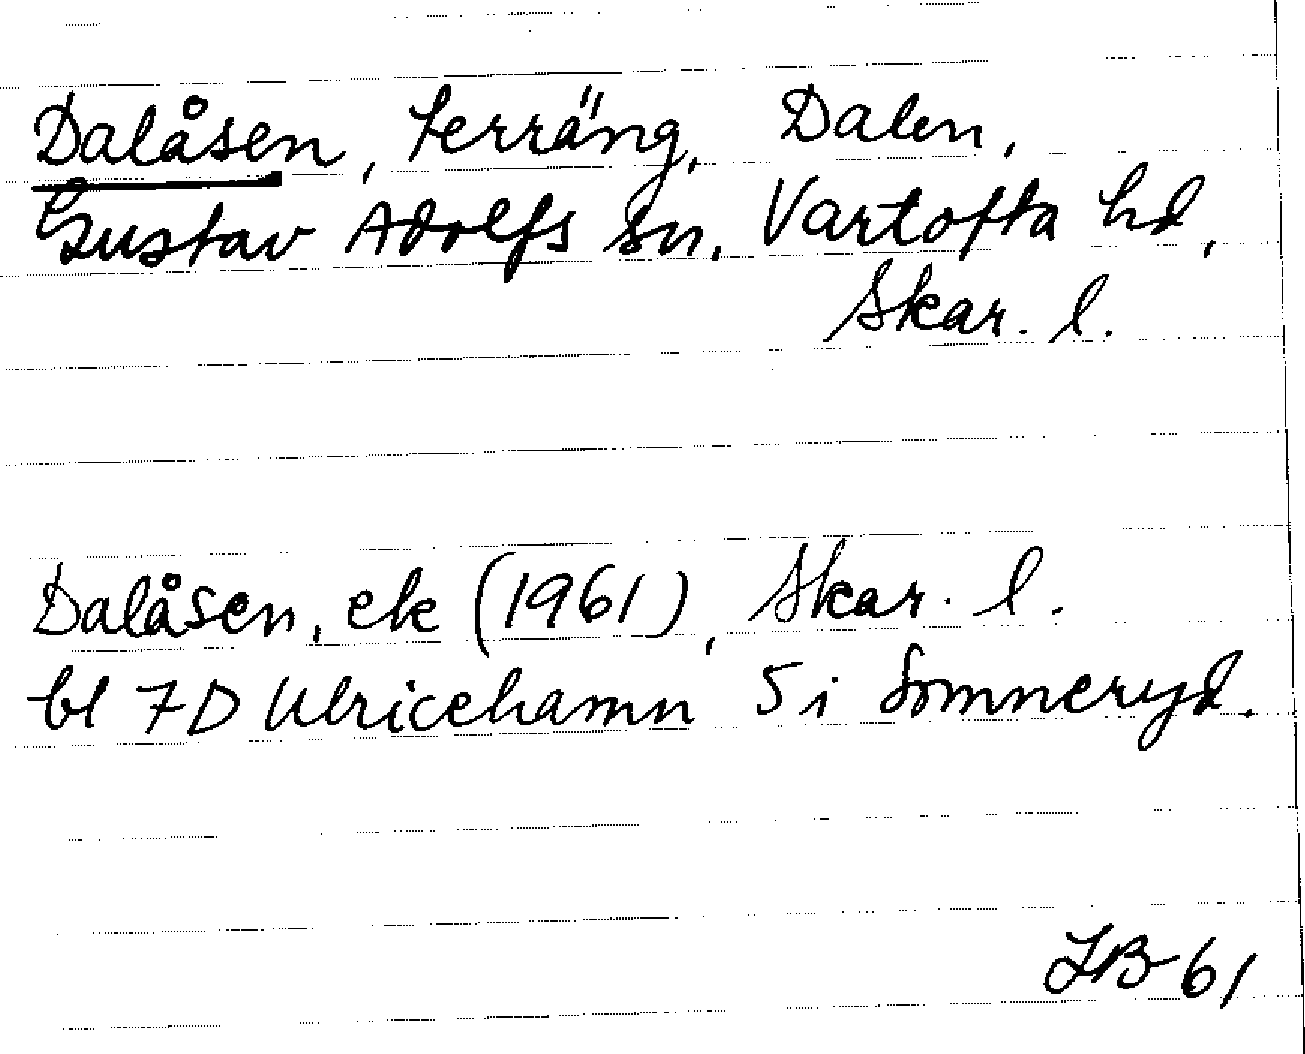 Dalåsen, terräng, Dalen,
Gustav Adolfs sn, Vartofta hd,
Skar. l.
Dalåsen, ek (1961), Skar. l.
bl 7D Ulricehamn 5i Sömneryd.
LB-61